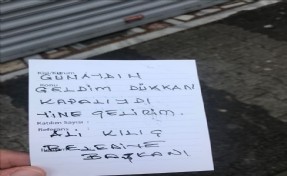 GÜNAYDIN
GELDİM DÜKKAN
KAPALIYDI
YİNE GELİRİM.
ALİ KILIÇ
BELEDİYE
BAŞKANI